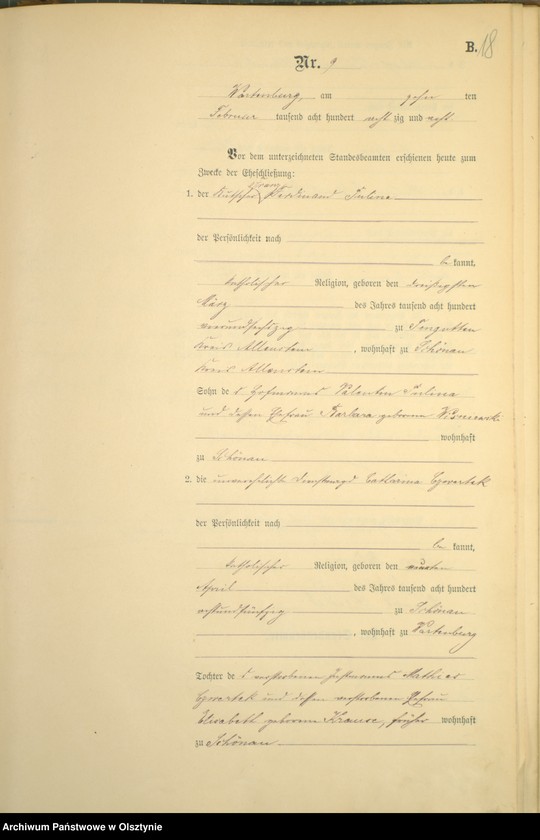 B. 18
Nr. 9
Wartenburg, am zehn ten
Februar tausend acht hundert acht zig und acht.
Vor dem unterzeichneten Standesbeamten erschienen heute zum
Zwecke der Eheschließung:
1. der Kutscher Ferdinand
der Persönlichkeit nach
be kannt,
katholischer Religion, geboren den dreißigsten
März des Jahres tausend acht hundert
vierundsechszig zu Tengutten
Kreis Allenstein, wohnhaft zu Schönau
Kreis Allenstein
Sohn des Hofmanns Valentin
und dessen Ehefrau Barbara geborene
wohnhaft
zu Schönau
2. die unverehelichte Dienstmagd Catharina Gzwartek
der Persönlichkeit nach
be kannt,
katholischer Religion, geboren den
April des Jahres tausend acht hundert
zu Schönau
, wohnhaft zu Wartenburg
Tochter des verstorbenen Instmanns Mathias
und dessen verstorbenen Ehefrau
Elisabeth geborene Krause, früher wohnhaft
zu Schönau
Archiwum Państwowe w Olsztynie